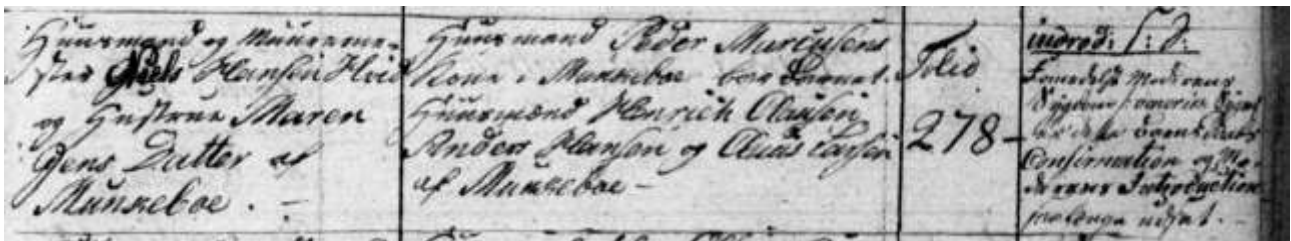 Huusmand og Muurerme-
ster Niels Hansen Hvid
og Hustrue Maren
Jens Datter af
Munkeboe. -
Huusmand Peder Marcusens
Kone i Munkeboe bar Barnet.
Huusmænd Henrich Clausen,
Anders Hansen og Claus Larsen
af Munkeboe -
Folio
278 -
introd: S: D:
Formedelst Moderens
Sygdom
Confirmation og Mo-
derens Introduction
saa længe udsat. -